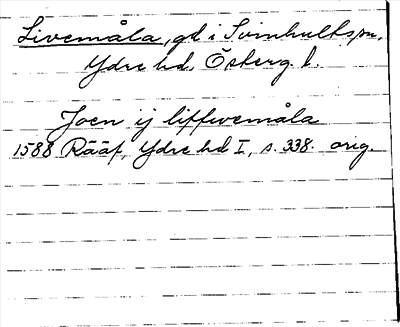 Livemåla, gd i Svinhults sn,
Ydre hd, Österg. l.
Joen ij liffwemåla
1588 Rääf, Ydre hd I, s. 338. orig.